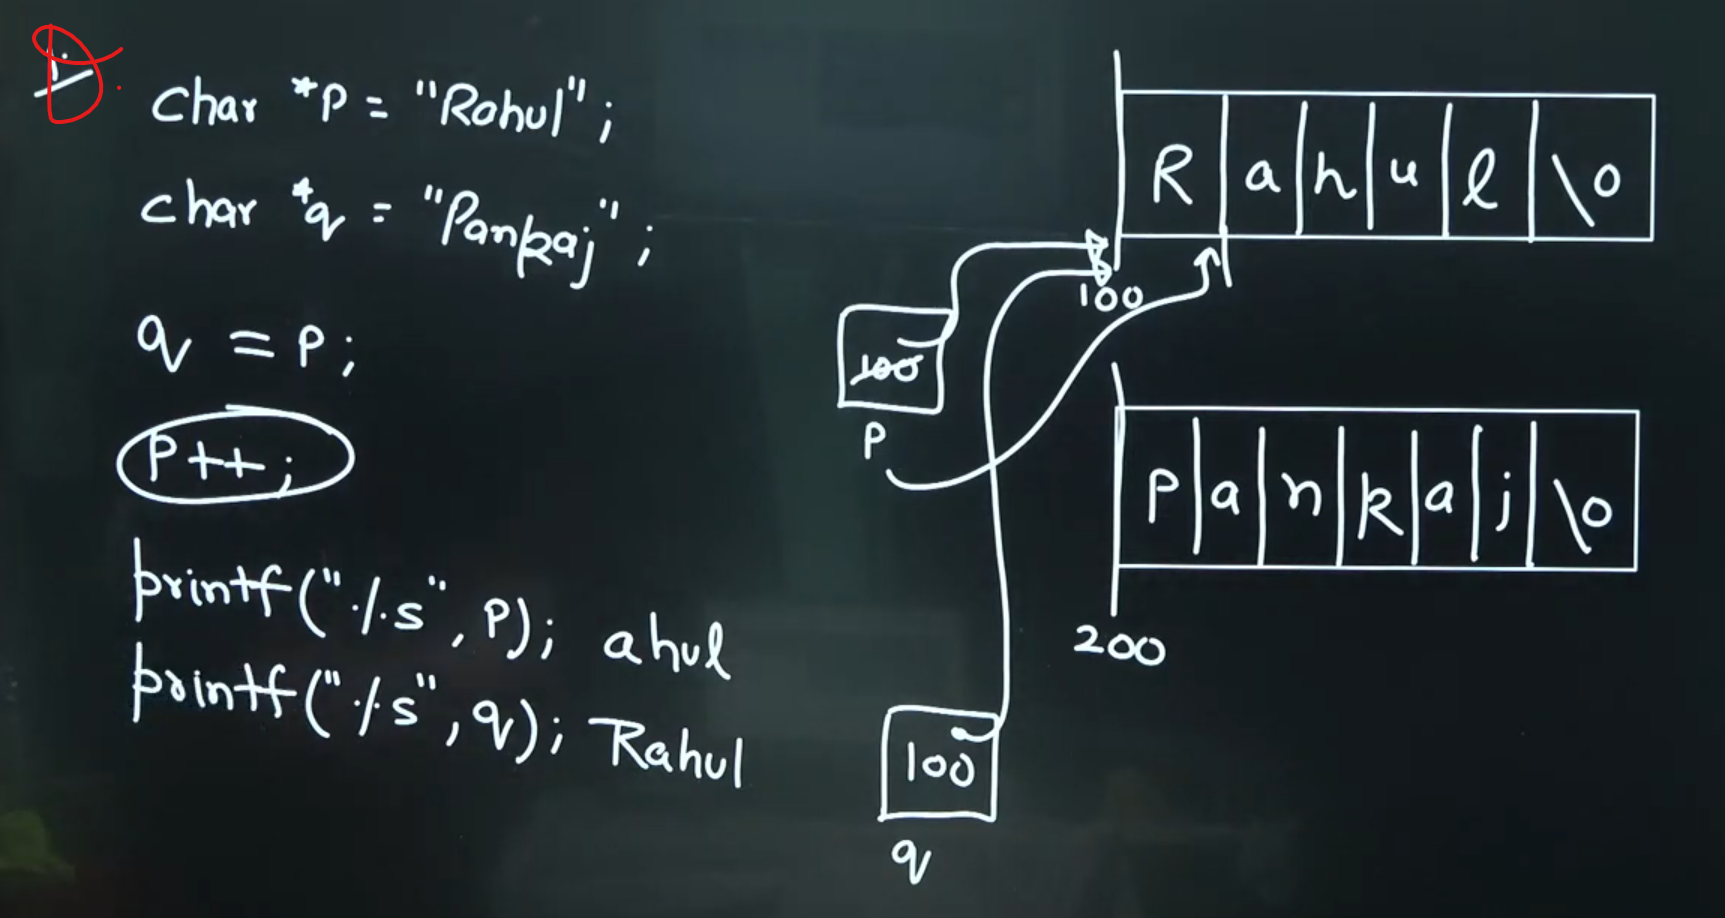 1.
D.
char *p = "Rahul";
char *q = "Pankaj";
q = p;
p++;
printf("%s", p); ahul
printf("%s", q); Rahul
R a h u l \0
100
100
p
P a n k a j \0
200
100
q